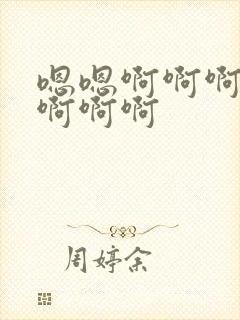 嗯嗯啊啊啊
啊啊啊
周婷余